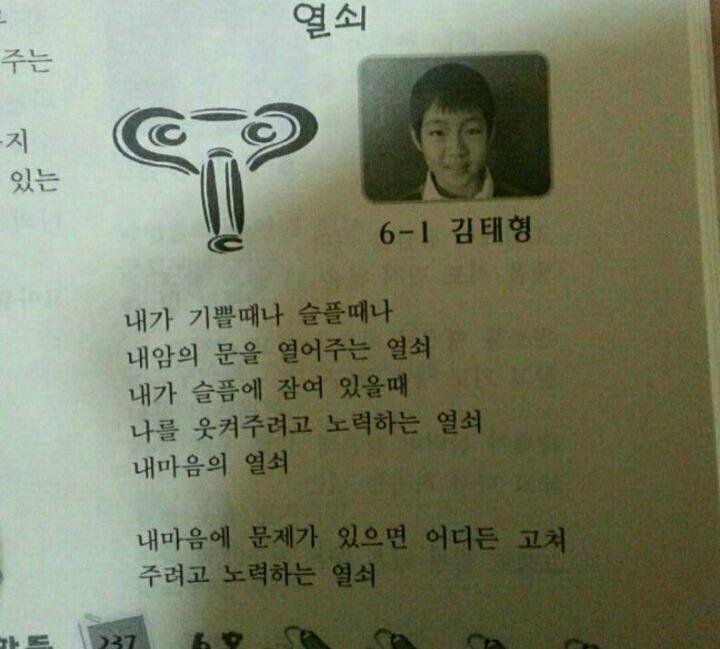 열쇠
주는
지
있는
6-1 김태형
내가 기쁠때나 슬플때나
내암의 문을 열어주는 열쇠
내가 슬픔에 잠여 있을때
나를 웃켜주려고 노력하는 열쇠
내마음의 열쇠
내마음에 문제가 있으면 어디든 고쳐
주려고 노력하는 열쇠
237